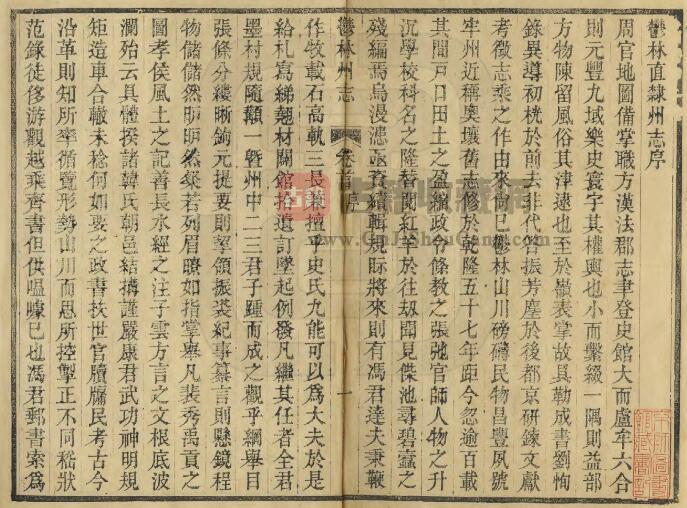 鬱林直隸州志序
周官地圖備掌職方漢法郡志聿登史館大而盧牟六合
則元豐九域樂史寰宇其權輿也小而繫綴一隅則益部
方物陳留風俗其津逮也至於嶽表掌故具勒成書劉恂
錄異導初桄於前去非代答振芳塵於後都京研鍊文獻
考徵志乘之作由來尚已鬱林山川磅礴民物昌豐夙號
牢州近稱奧壤舊志修於乾隆五十七年距今忽逾百載
其間戸口田土之盈縮政令條教之張弛官師人物之升
沉學校科名之隆替閱紅羊於往劫聞見傑池尋碧蠹之
殘編焉烏漫漶亟資續輯規眎將來則有馮君達夫秉鞭
鬱林州志
卷首序
一
作牧載石高軌三長兼擅乎史氏九能可以為大夫於是
給札寫綈翹材闢館拾遺訂墜起例發凡繼其任者全君
墨村規隨顓一暨州中二三君子踵而成之觀乎綱舉目
張條分縷晰鉤元提要則挈領振裘紀事纂言則懸鏡程
物儲儲然昈昈然粲若列眉瞭如指掌舉凡裴秀禹貢之
圖孝侯風土之記善長水經之注子雲方言之文根底波
瀾殆云具體揆諸韓氏朝邑結搆謹嚴康君武功神明規
矩造車合轍未稔何如要之政書扶世官牘牖民考古今
沿革則知所率循覽形勢山川而思所控掣正不同嵇狀
范錄徒侈游觀越乘齊書但供嗢噱已也馮君郵書索為
古籍收藏苑
www.GuJiShouCang.com